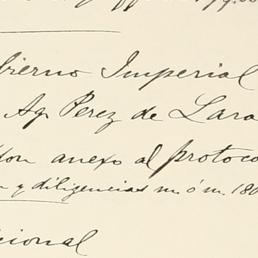 bierno Imperial
Ag. Perez de Lara
anexo al protoco
y diligencias m. ó m. 180
cional